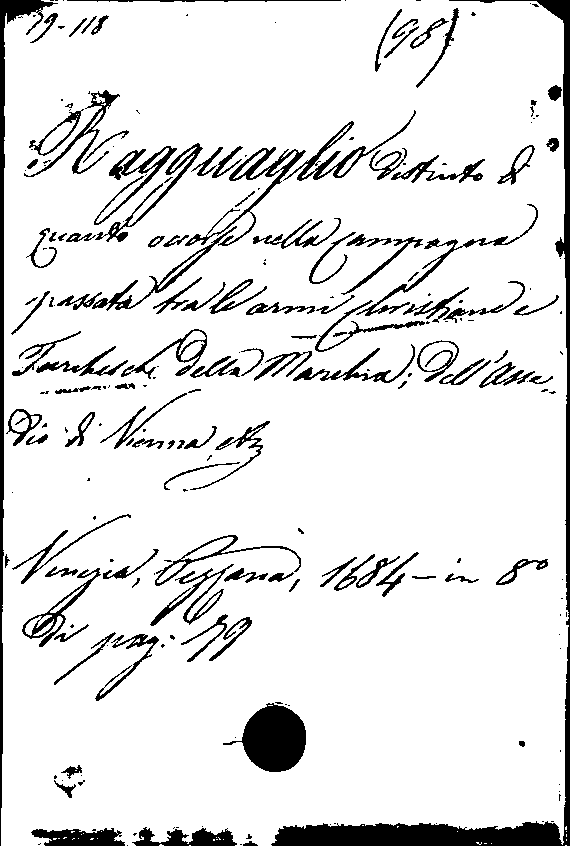 79-118 (98)
Ragguaglio distinto di
quanto occorse nella campagna
passata tra le armi Christiane e
Turchesche della Marchia; dell'Asse-
dio di Vienna etc
Venezia, Pezzana, 1684 - in 8º
di pag: 79